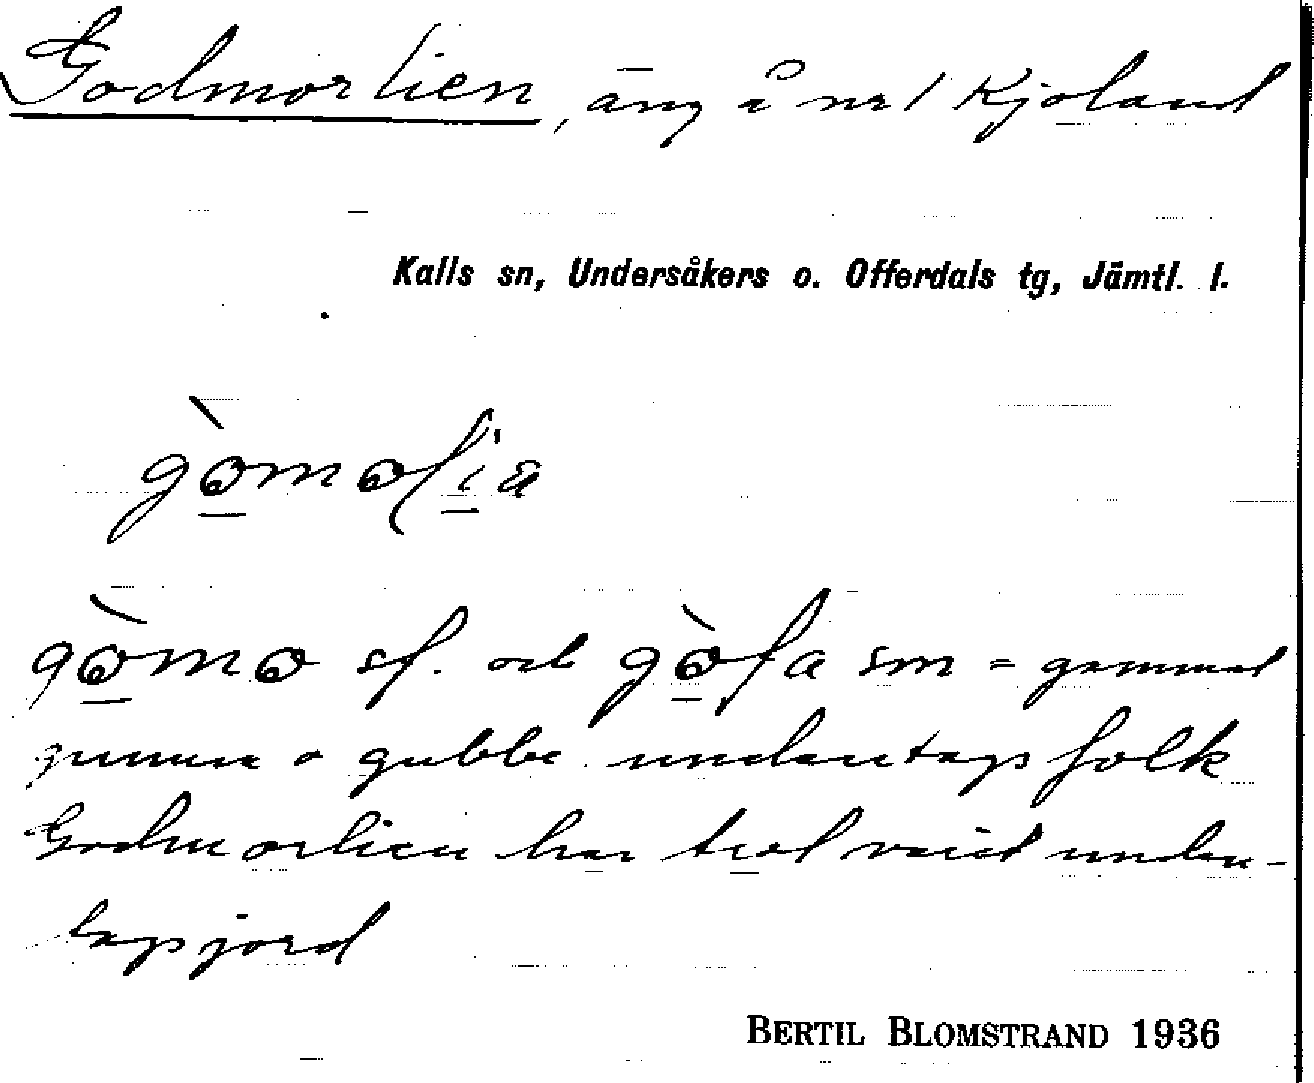 Godmorlien, äng å nr 1 Kjoland
Kalls sn, Undersåkers o. Offerdals tg, Jämtl. l.
gòmoḷia
gòmo sf. och gòfa sm = gammal
gumma o gubbe. undantagsfolk
Godmorlien har trol varit undan-
tagsjord
BERTIL BLOMSTRAND 1936